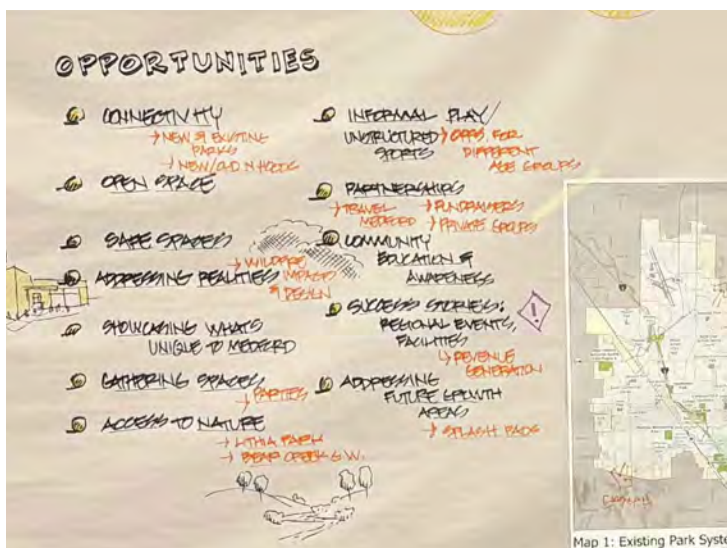 OPPORTUNITIES
CONNECTIVITY
→ NEW & EXISTING
PARKS
→ NEW/OLD N'HOODS
OPEN SPACE
SAFE SPACES
ADDRESSING REALITIES
→ WILDFIRE
IMPACTS
& DESIGN
SHOWCASING WHATS
UNIQUE TO MEDFORD
GATHERING SPACES
→ PARTIES
ACCESS TO NATURE
→ LITHIA PARK
→ BEAR CREEK G.W.
INFORMAL PLAY/
UNSTRUCTURED
SPORTS
→ OPPS. FOR
DIFFERENT
AGE GROUPS
PARTNERSHIPS
→ TRAVEL
MEDFORD
→ FUNDRAISERS
→ PRIVATE GROUPS
COMMUNITY
EDUCATION &
AWARENESS
SUCCESS STORIES:
REGIONAL EVENTS,
FACILITIES
!
↳ REVENUE
GENERATION
ADDRESSING
FUTURE GROWTH
AREAS
→ SPLASH PADS
Map 1: Existing Park Syste